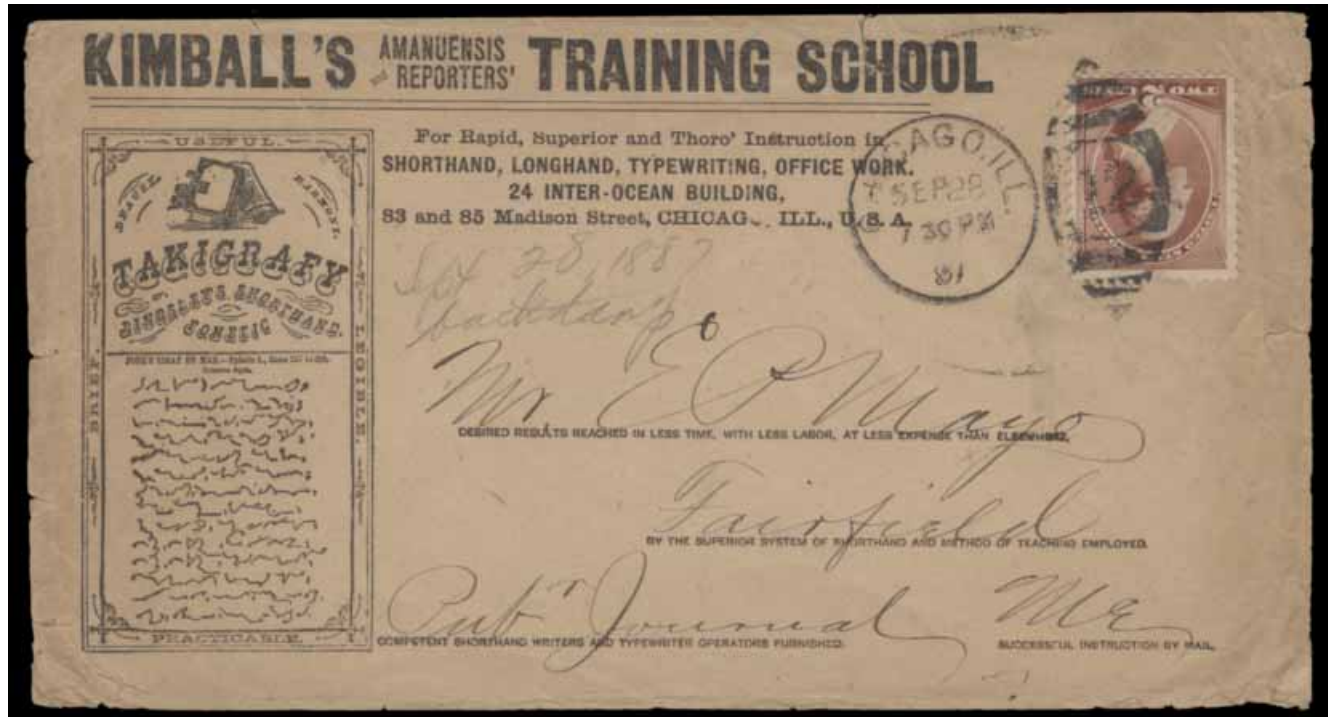 KIMBALL'S AMANUENSIS REPORTERS' TRAINING SCHOOL
For Rapid, Superior and Thoro' Instruction in
SHORTHAND, LONGHAND, TYPEWRITING, OFFICE WORK.
24 INTER-OCEAN BUILDING,
83 and 85 Madison Street, CHICAGO, ILL., U.S.A.
USEFUL.
BEAUTY. HARMONY.
TAKIGRAFY
OR,
LINDSLEY'S SHORTHAND.
FONETIC
BRIEF.
LEGIBLE.
PRACTICABLE.
CAGO, ILL.
SEP 28
7 30 PM
Sept 28, 1887
backstamp
Mr. E P Mayo
DESIRED RESULTS REACHED IN LESS TIME, WITH LESS LABOR, AT LESS EXPENSE THAN ELSEWHERE,
Fairfield
BY THE SUPERIOR SYSTEM OF SHORTHAND AND METHOD OF TEACHING EMPLOYED.
Pubr Journal Me
COMPETENT SHORTHAND WRITERS AND TYPEWRITER OPERATORS FURNISHED. SUCCESSFUL INSTRUCTION BY MAIL.